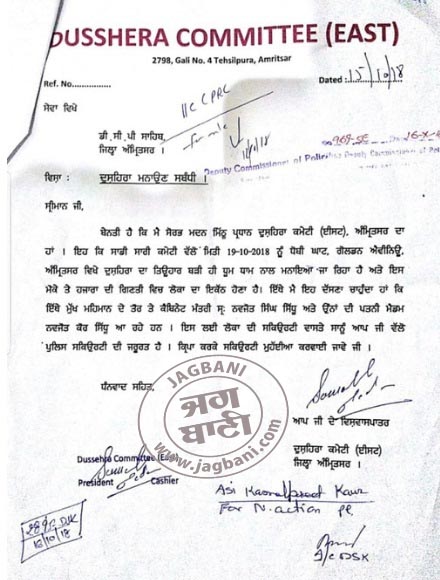 DUSSHERA COMMITTEE (EAST)
2798, Gali No. 4 Tehsilpura, Amritsar
Ref. No.................
Dated :.15/10/18
ਸੇਵਾ ਵਿਖੇ
IIC CPRC
ਡੀ.ਸੀ.ਪੀ ਸਾਹਿਬ,
ਜਿਲ੍ਹਾ ਅੰਮ੍ਰਿਤਸਰ।
for n/c
Deputy Commissioner of Police
ਵਿਸ਼ਾ : ਦੁਸਹਿਰਾ ਮਨਾਉਣ ਸਬੰਧੀ ।
ਸ੍ਰੀਮਾਨ ਜੀ,
ਬੇਨਤੀ ਹੈ ਕਿ ਮੈ ਸੋਰਭ ਮਦਨ ਮਿੱਠੂ ਪ੍ਰਧਾਨ ਦੁਸ਼ਹਿਰਾ ਕਮੇਟੀ (ਈਸਟ), ਅੰਮ੍ਰਿਤਸਰ ਦਾ
ਹਾਂ । ਇਹ ਕਿ ਸਾਡੀ ਸਾਰੀ ਕਮੇਟੀ ਵੱਲੋ ਮਿਤੀ 19-10-2018 ਨੂੰ ਧੋਬੀ ਘਾਟ, ਗੋਲਡਨ ਐਵੀਨਿਊ,
ਅੰਮ੍ਰਿਤਸਰ ਵਿਖੇ ਦੁਸ਼ਹਿਰਾ ਦਾ ਤਿਉਹਾਰ ਬੜੀ ਹੀ ਧੂਮ ਧਾਮ ਨਾਲ ਮਨਾਇਆ ਜਾ ਰਿਹਾ ਹੈ ਅਤੇ ਇਸ
ਮੌਕੇ ਤੇ ਹਜਾਰਾ ਦੀ ਗਿਣਤੀ ਵਿਚ ਲੋਕਾ ਦਾ ਇਕੱਠ ਹੋਣਾ ਹੈ। ਇੱਥੇ ਮੈ ਇਹ ਦੱਸਣਾ ਚਾਹੁੰਦਾ ਹਾਂ ਕਿ
ਇੱਥੇ ਮੁੱਖ ਮਹਿਮਾਨ ਦੇ ਤੌਰ ਤੇ ਕੈਬਿਨੇਟ ਮੰਤਰੀ ਸ੍ਰ: ਨਵਜੋਤ ਸਿੰਘ ਸਿੱਧੂ ਅਤੇ ਉਨਾਂ ਦੀ ਪਤਨੀ ਮੈਡਮ
ਨਵਜੋਤ ਕੌਰ ਸਿੱਧੂ ਆ ਰਹੇ ਹਨ । ਇਸ ਲਈ ਲੋਕਾ ਦੀ ਸਕਿਉਰਟੀ ਵਾਸਤੇ ਸਾਨੂੰ ਆਪ ਜੀ ਵੱਲੋਂ
ਪੁਲਿਸ ਸਕਿਉਰਟੀ ਦੀ ਜਰੂਰਤ ਹੈ । ਕ੍ਰਿਪਾ ਕਰਕੇ ਸਕਿਉਰਟੀ ਮੁਹੱਈਆ ਕਰਵਾਈ ਜਾਵੇ ਜੀ ।
ਧੰਨਵਾਦ ਸਹਿਤ,
JAGBANI
ਜਗ ਬਾਣੀ
www.jagbani.com
ਆਪ ਜੀ ਦੇ ਵਿਸ਼ਵਾਸਪਾਤਰ
ਦੁਸ਼ਹਿਰਾ ਕਮੇਟੀ (ਈਸਟ)
ਜਿਲ੍ਹਾ ਅੰਮ੍ਰਿਤਸਰ।
Dussehra Committee (East)
President
Cashier
Asi Kamalpreet Kaur
For N.action pl